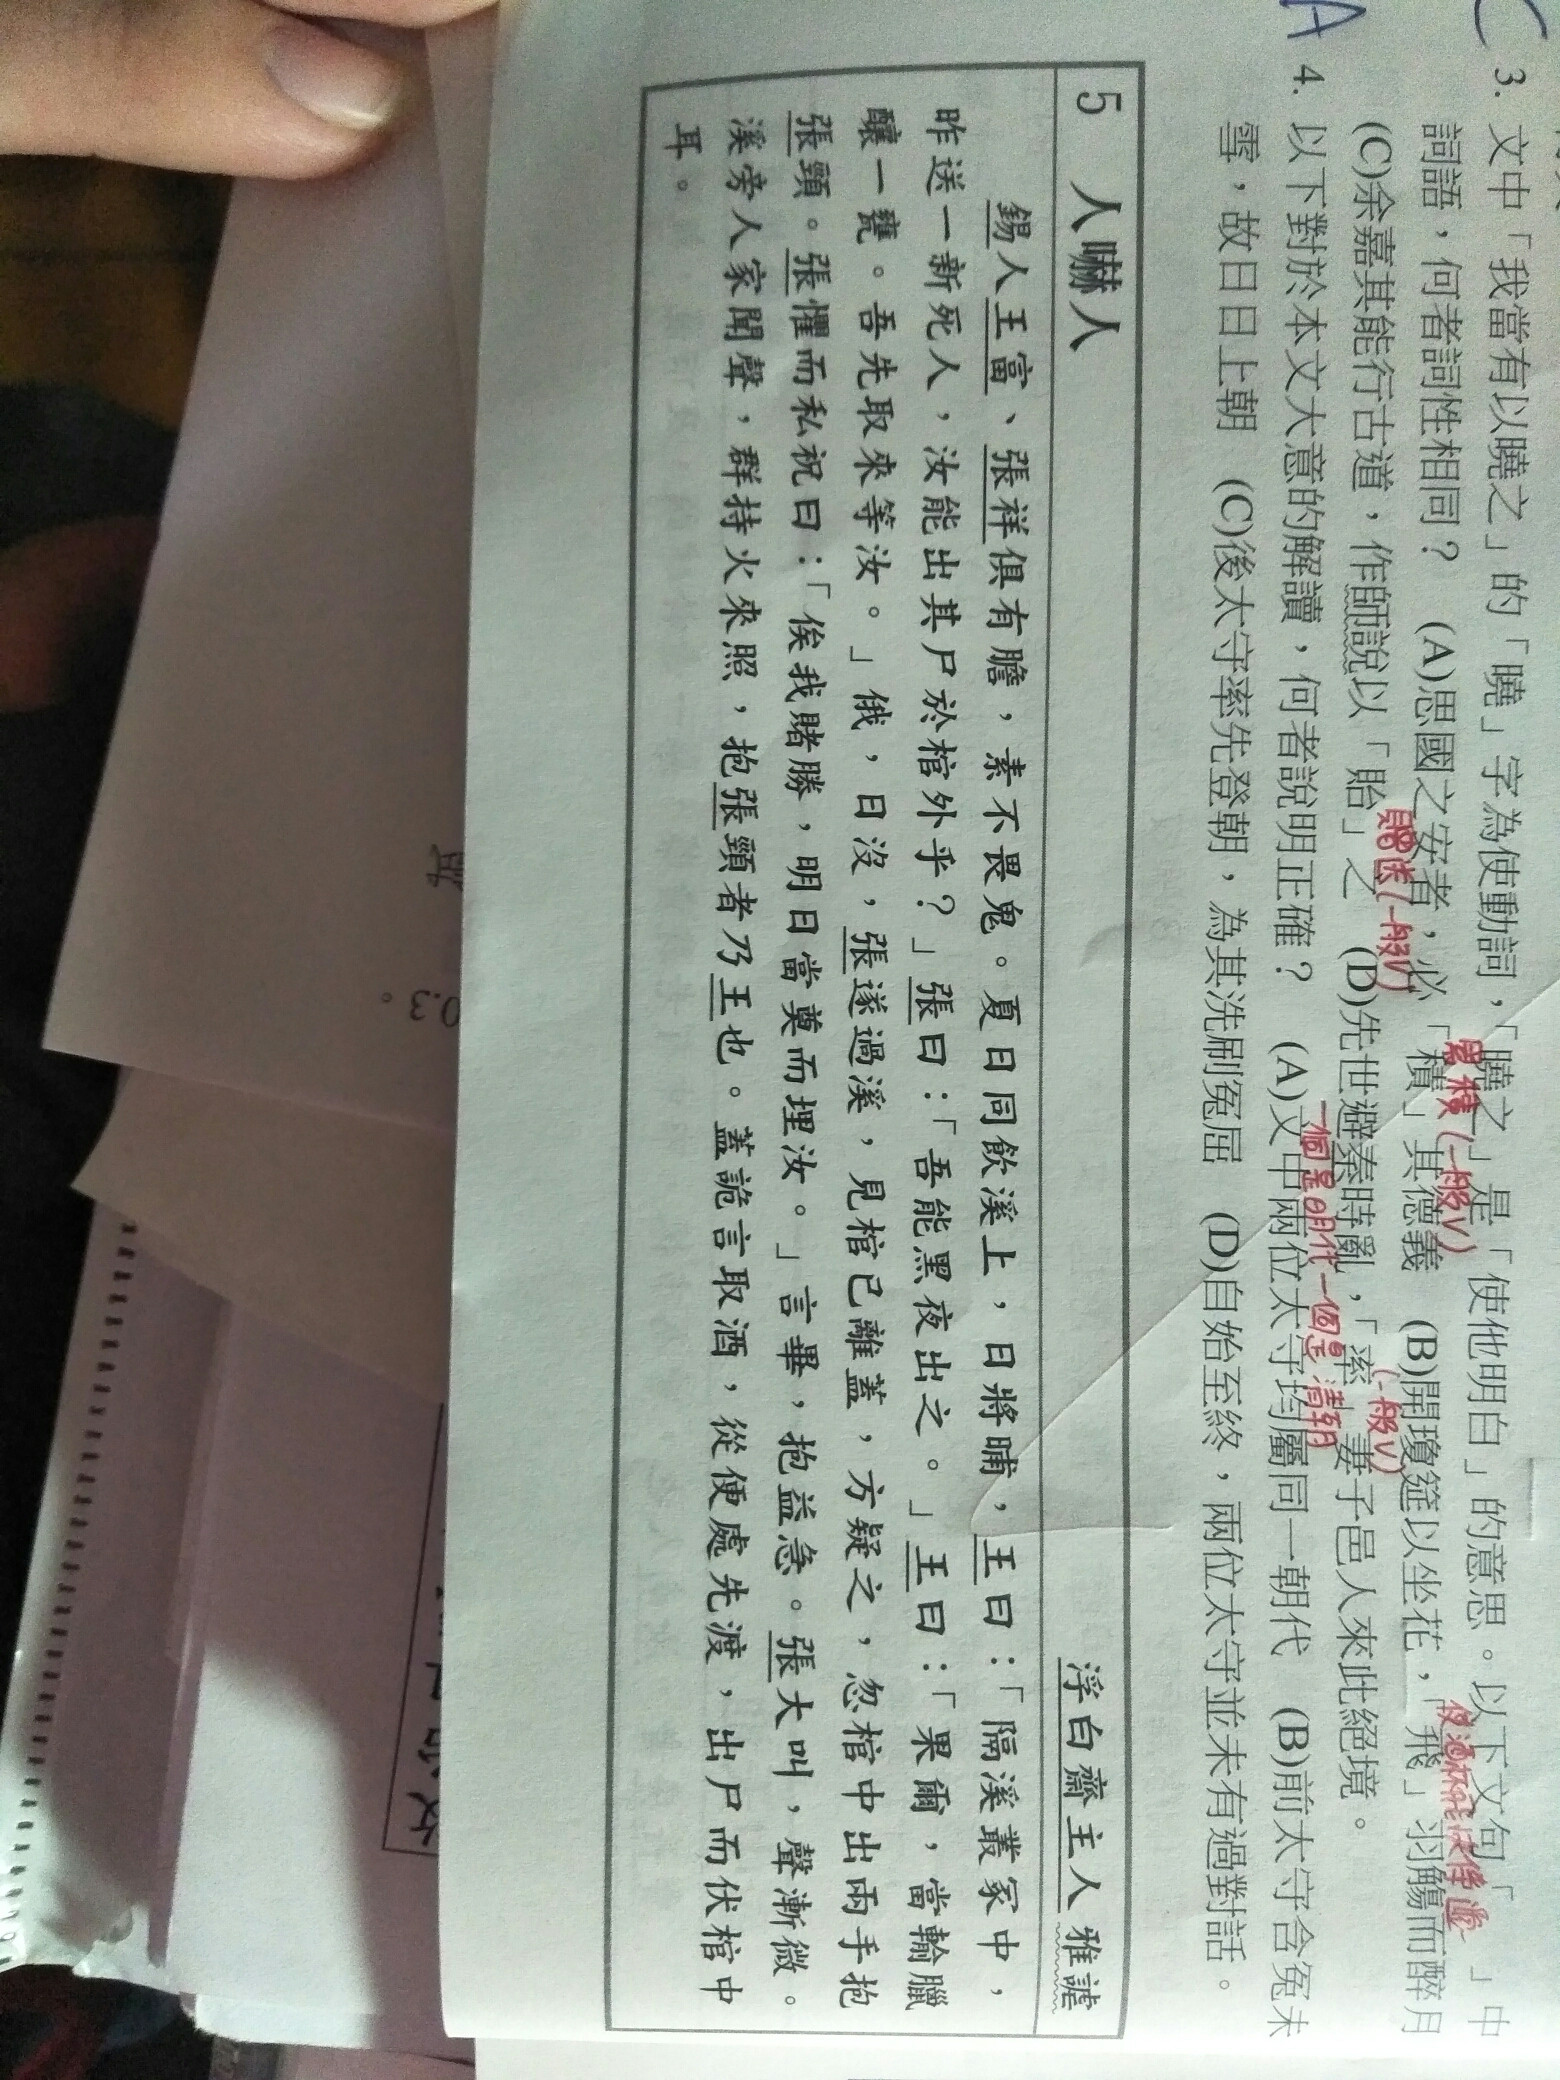 C
3. 文中「我當有以曉之」的「曉」字為使動詞，「曉之」是「使他明白」的意思。以下文句「　」中
詞語，何者詞性相同？　(A)思國之安者，必「積」其德義　(B)開瓊筵以坐花，「飛」羽觴而醉月
累積(一般V)
(C)余嘉其能行古道，作師說以「貽」之　(D)先世避秦時亂，「率」妻子邑人來此絕境。
贈送(一般V)
(一般V)
A
4. 以下對於本文大意的解讀，何者說明正確？　(A)文中兩位太守均屬同一朝代　(B)前太守含冤未
一個是明代一個是清朝
雪，故日日上朝　(C)後太守率先登朝，為其洗刷冤屈　(D)自始至終，兩位太守並未有過對話。
5　人嚇人　浮白齋主人雅謔
錫人王富、張祥俱有膽，素不畏鬼。夏日同飲溪上，日將晡，王曰：「隔溪叢冢中，
昨送一新死人，汝能出其尸於棺外乎？」張曰：「吾能黑夜出之。」王曰：「果爾，當輸臘
釀一甕。吾先取來等汝。」俄，日沒，張遂過溪，見棺已離蓋，方疑之，忽棺中出兩手抱
張頸。張懼而私祝曰：「俟我賭勝，明日當奠而埋汝。」言畢，抱益急。張大叫，聲漸微。
溪旁人家聞聲，群持火來照，抱張頸者乃王也。蓋詭言取酒，從便處先渡，出尸而伏棺中
耳。
0.3。